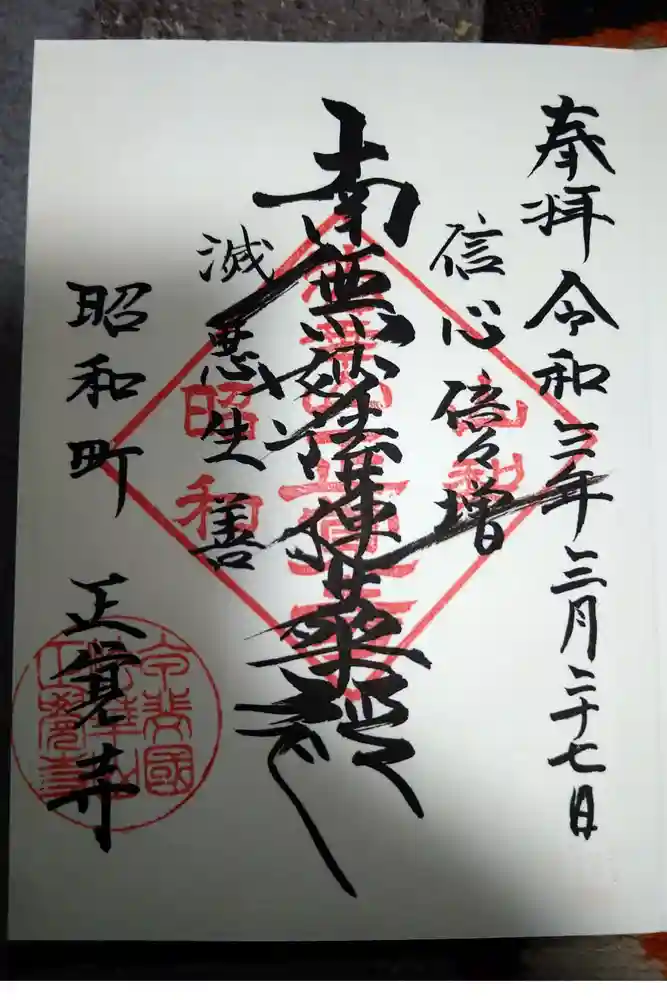 奉拝 令和三年三月二十七日
信心倍々増
南無妙法蓮華経
滅悪生善
昭和町 正覚寺
昭和